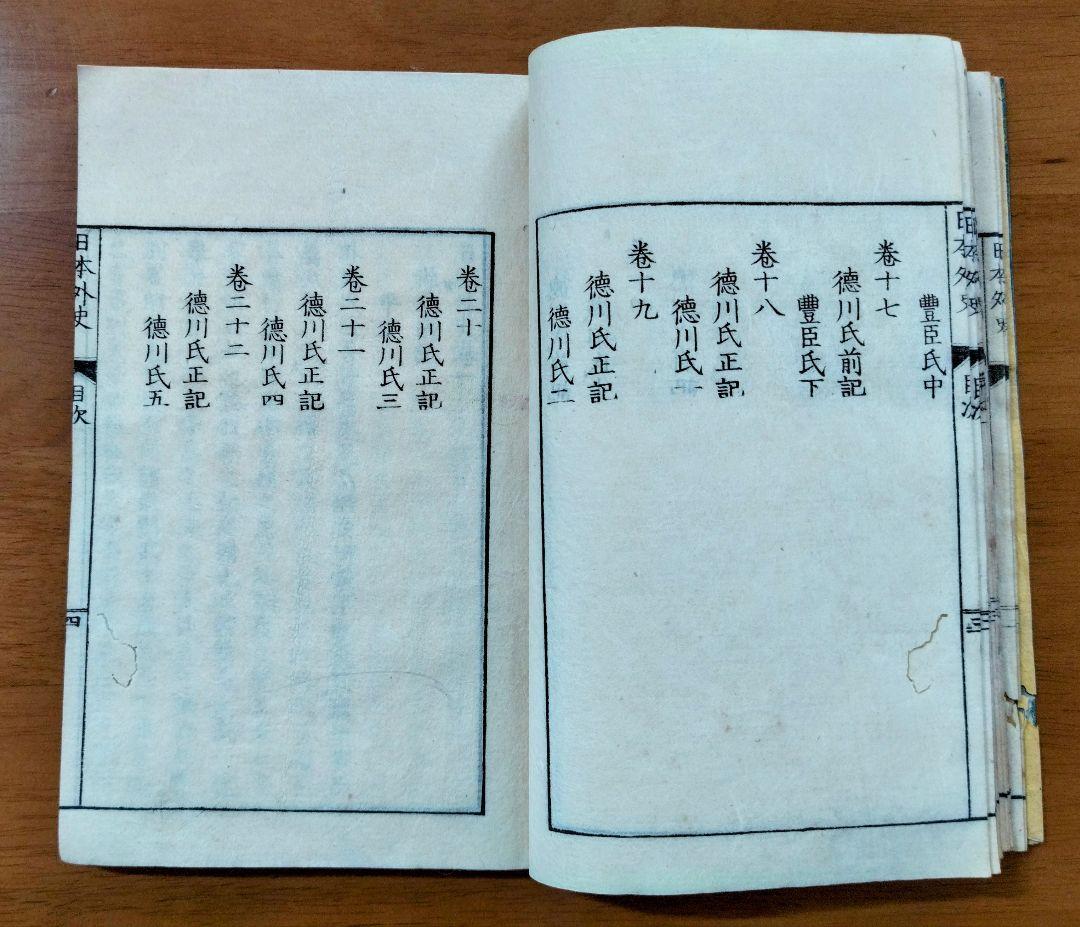 豐臣氏中
卷十七
德川氏前記
豐臣氏下
卷十八
德川氏正記
德川氏一
卷十九
德川氏正記
德川氏二
卷二十
德川氏正記
德川氏三
卷二十一
德川氏正記
德川氏四
卷二十二
德川氏正記
德川氏五
日本外史
目次
四